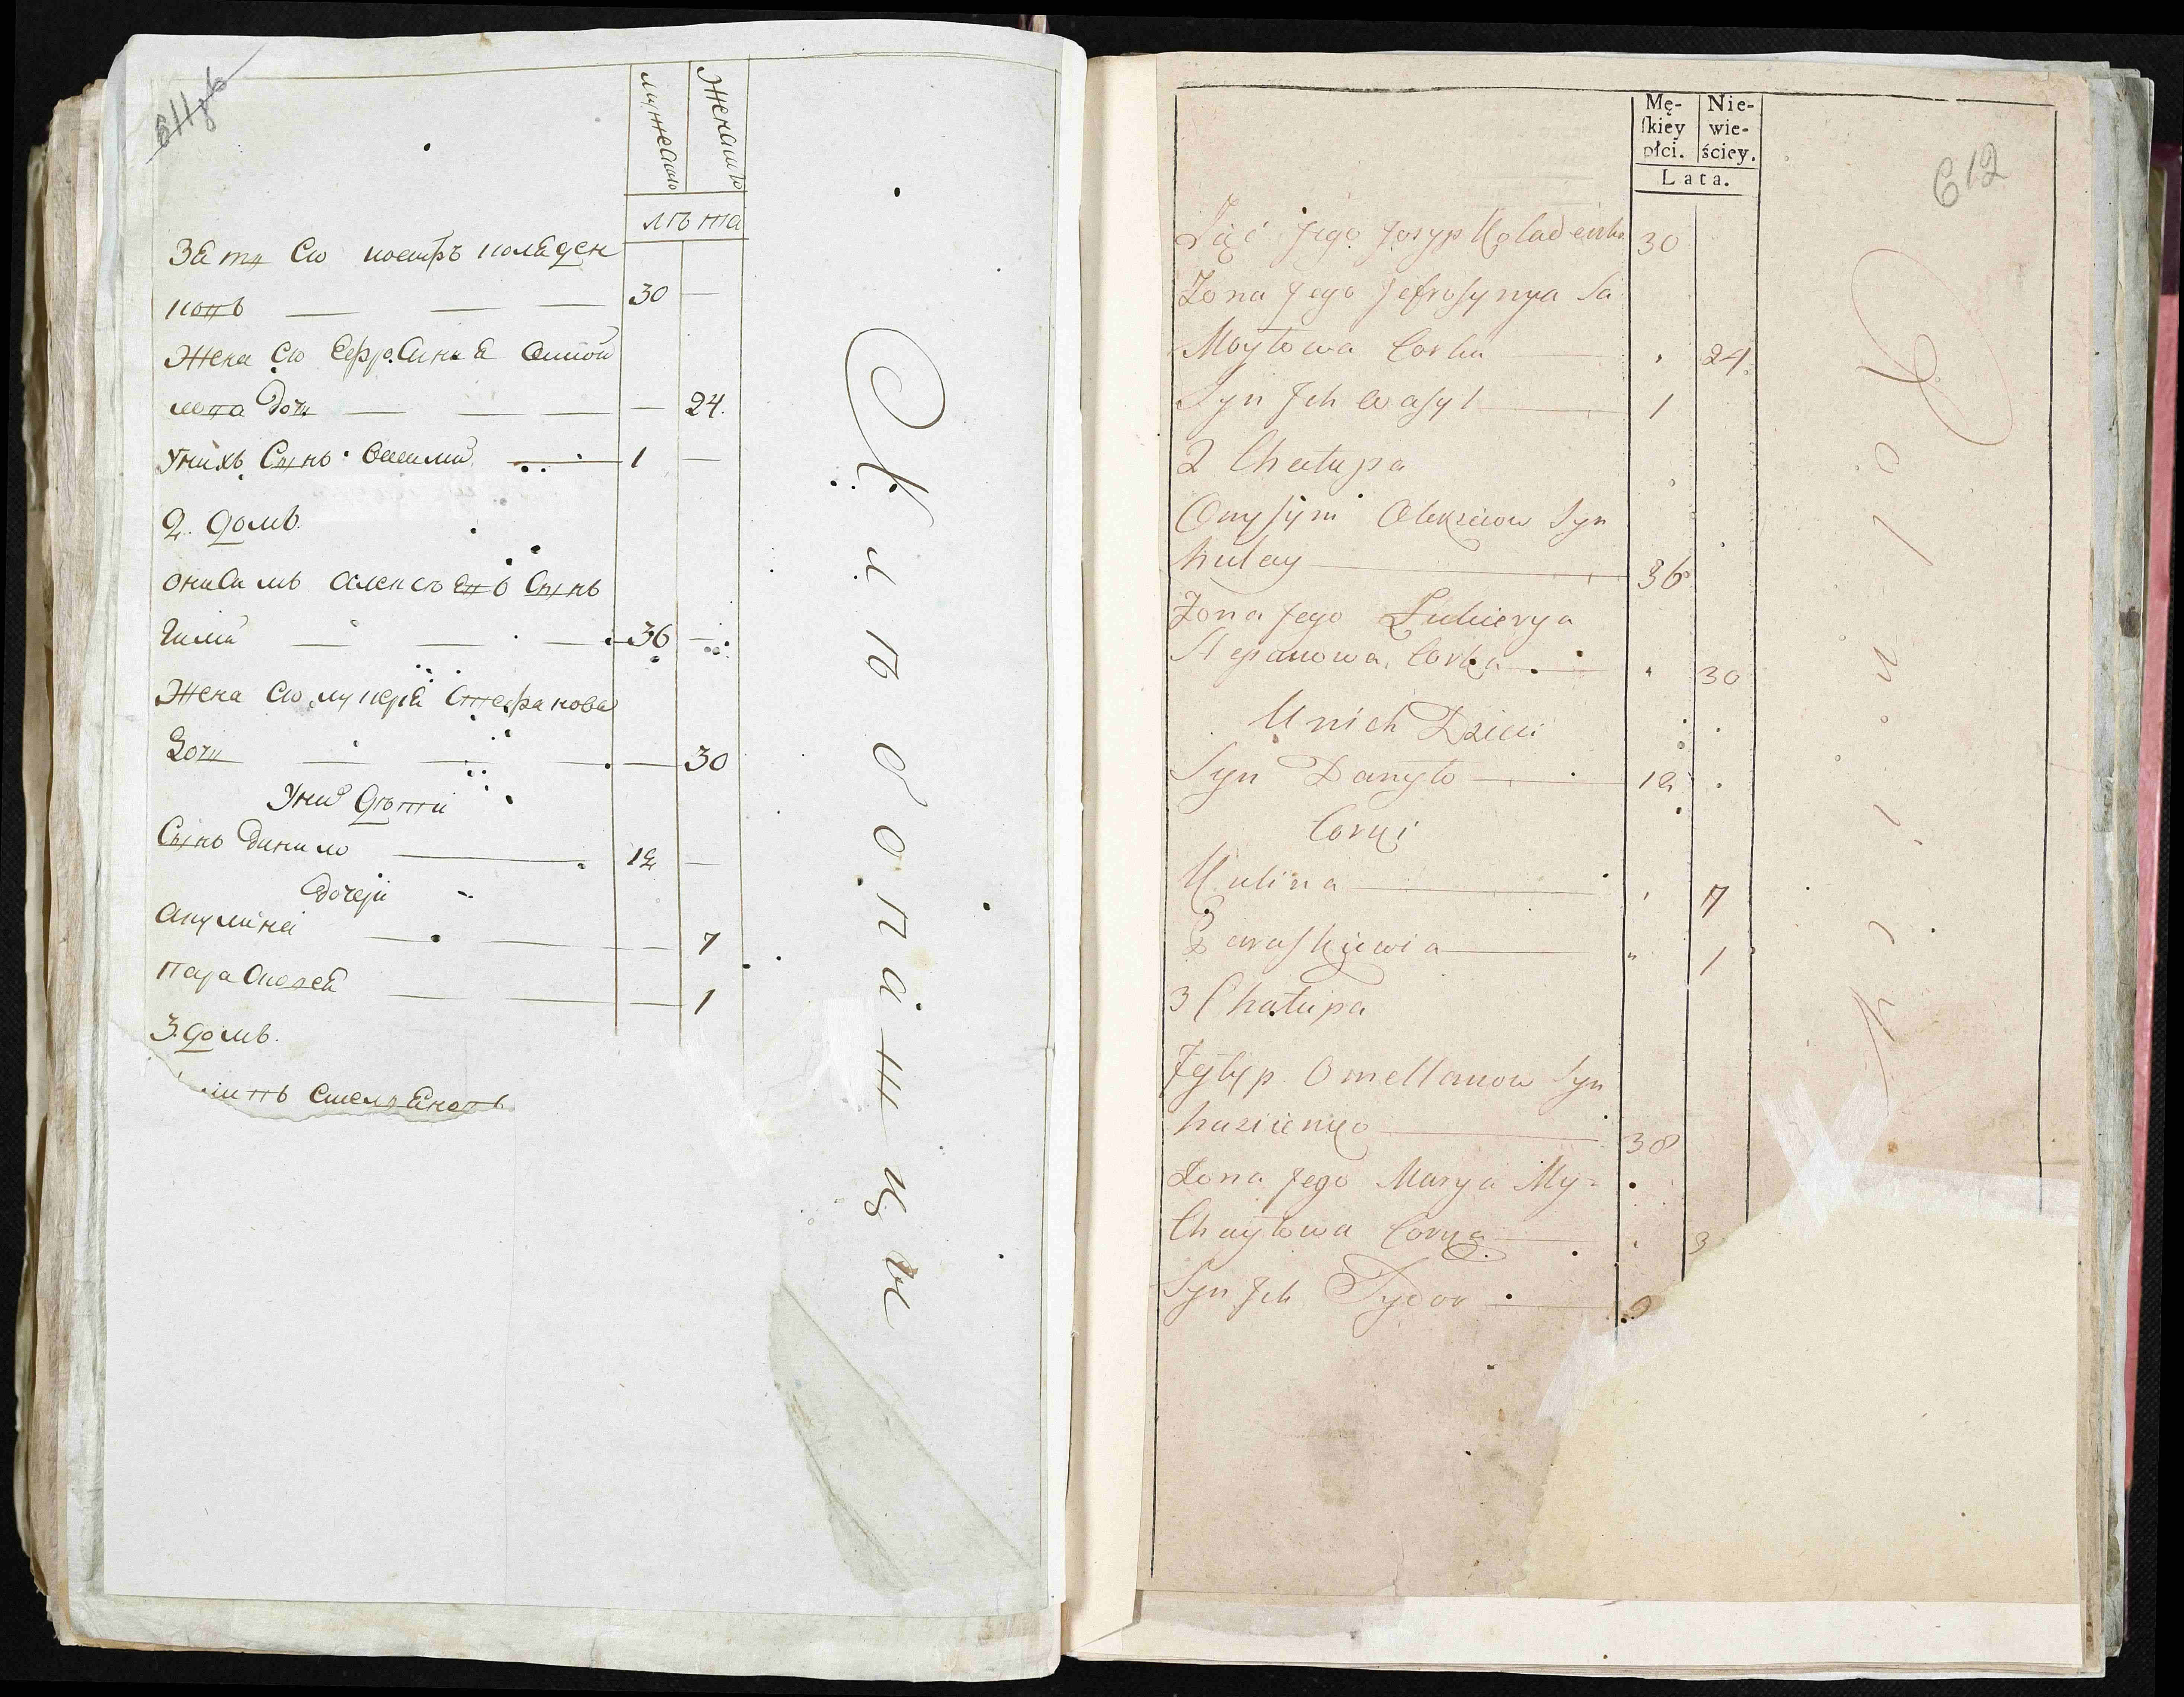 611 об
мужеска
женска
лѣта
Зять его иосифъ коляден
ковъ 30
Жена его Ефросиниа Самои
лова дочь 24.
У нихъ Сынъ Василий 1
2. домъ.
Онисимъ алексѣевъ Сынъ
36
Жена его лукеріа Стефанова
дочь 30
У них дѣти
Сынъ Данило 12
дочери
Акулина 7
Параскевіа 1
3. домъ.
612
Mę-
skiey
płci.
Nie-
wie-
ściey.
Lata.
Zięć jego Josyp Koladenko 30
Żona jego Jefrosynya Sa
Moyłowa Corka 24.
Syn Ich Wasyl 1
2 Chałupa
Onysym Olexiiow Syn
Hulay 36
Żona Jego Lukierya
Stepanowa Corka 30
U nich Dzieci
Syn Danyło 12
Corki
Kulina 7
Paraskiewia 1
3 Chałupa
Fylyp Omellanow Syn
38
Żona Jego Marya My-
Chayłowa Corka 3
Syn Ich Sydor 9